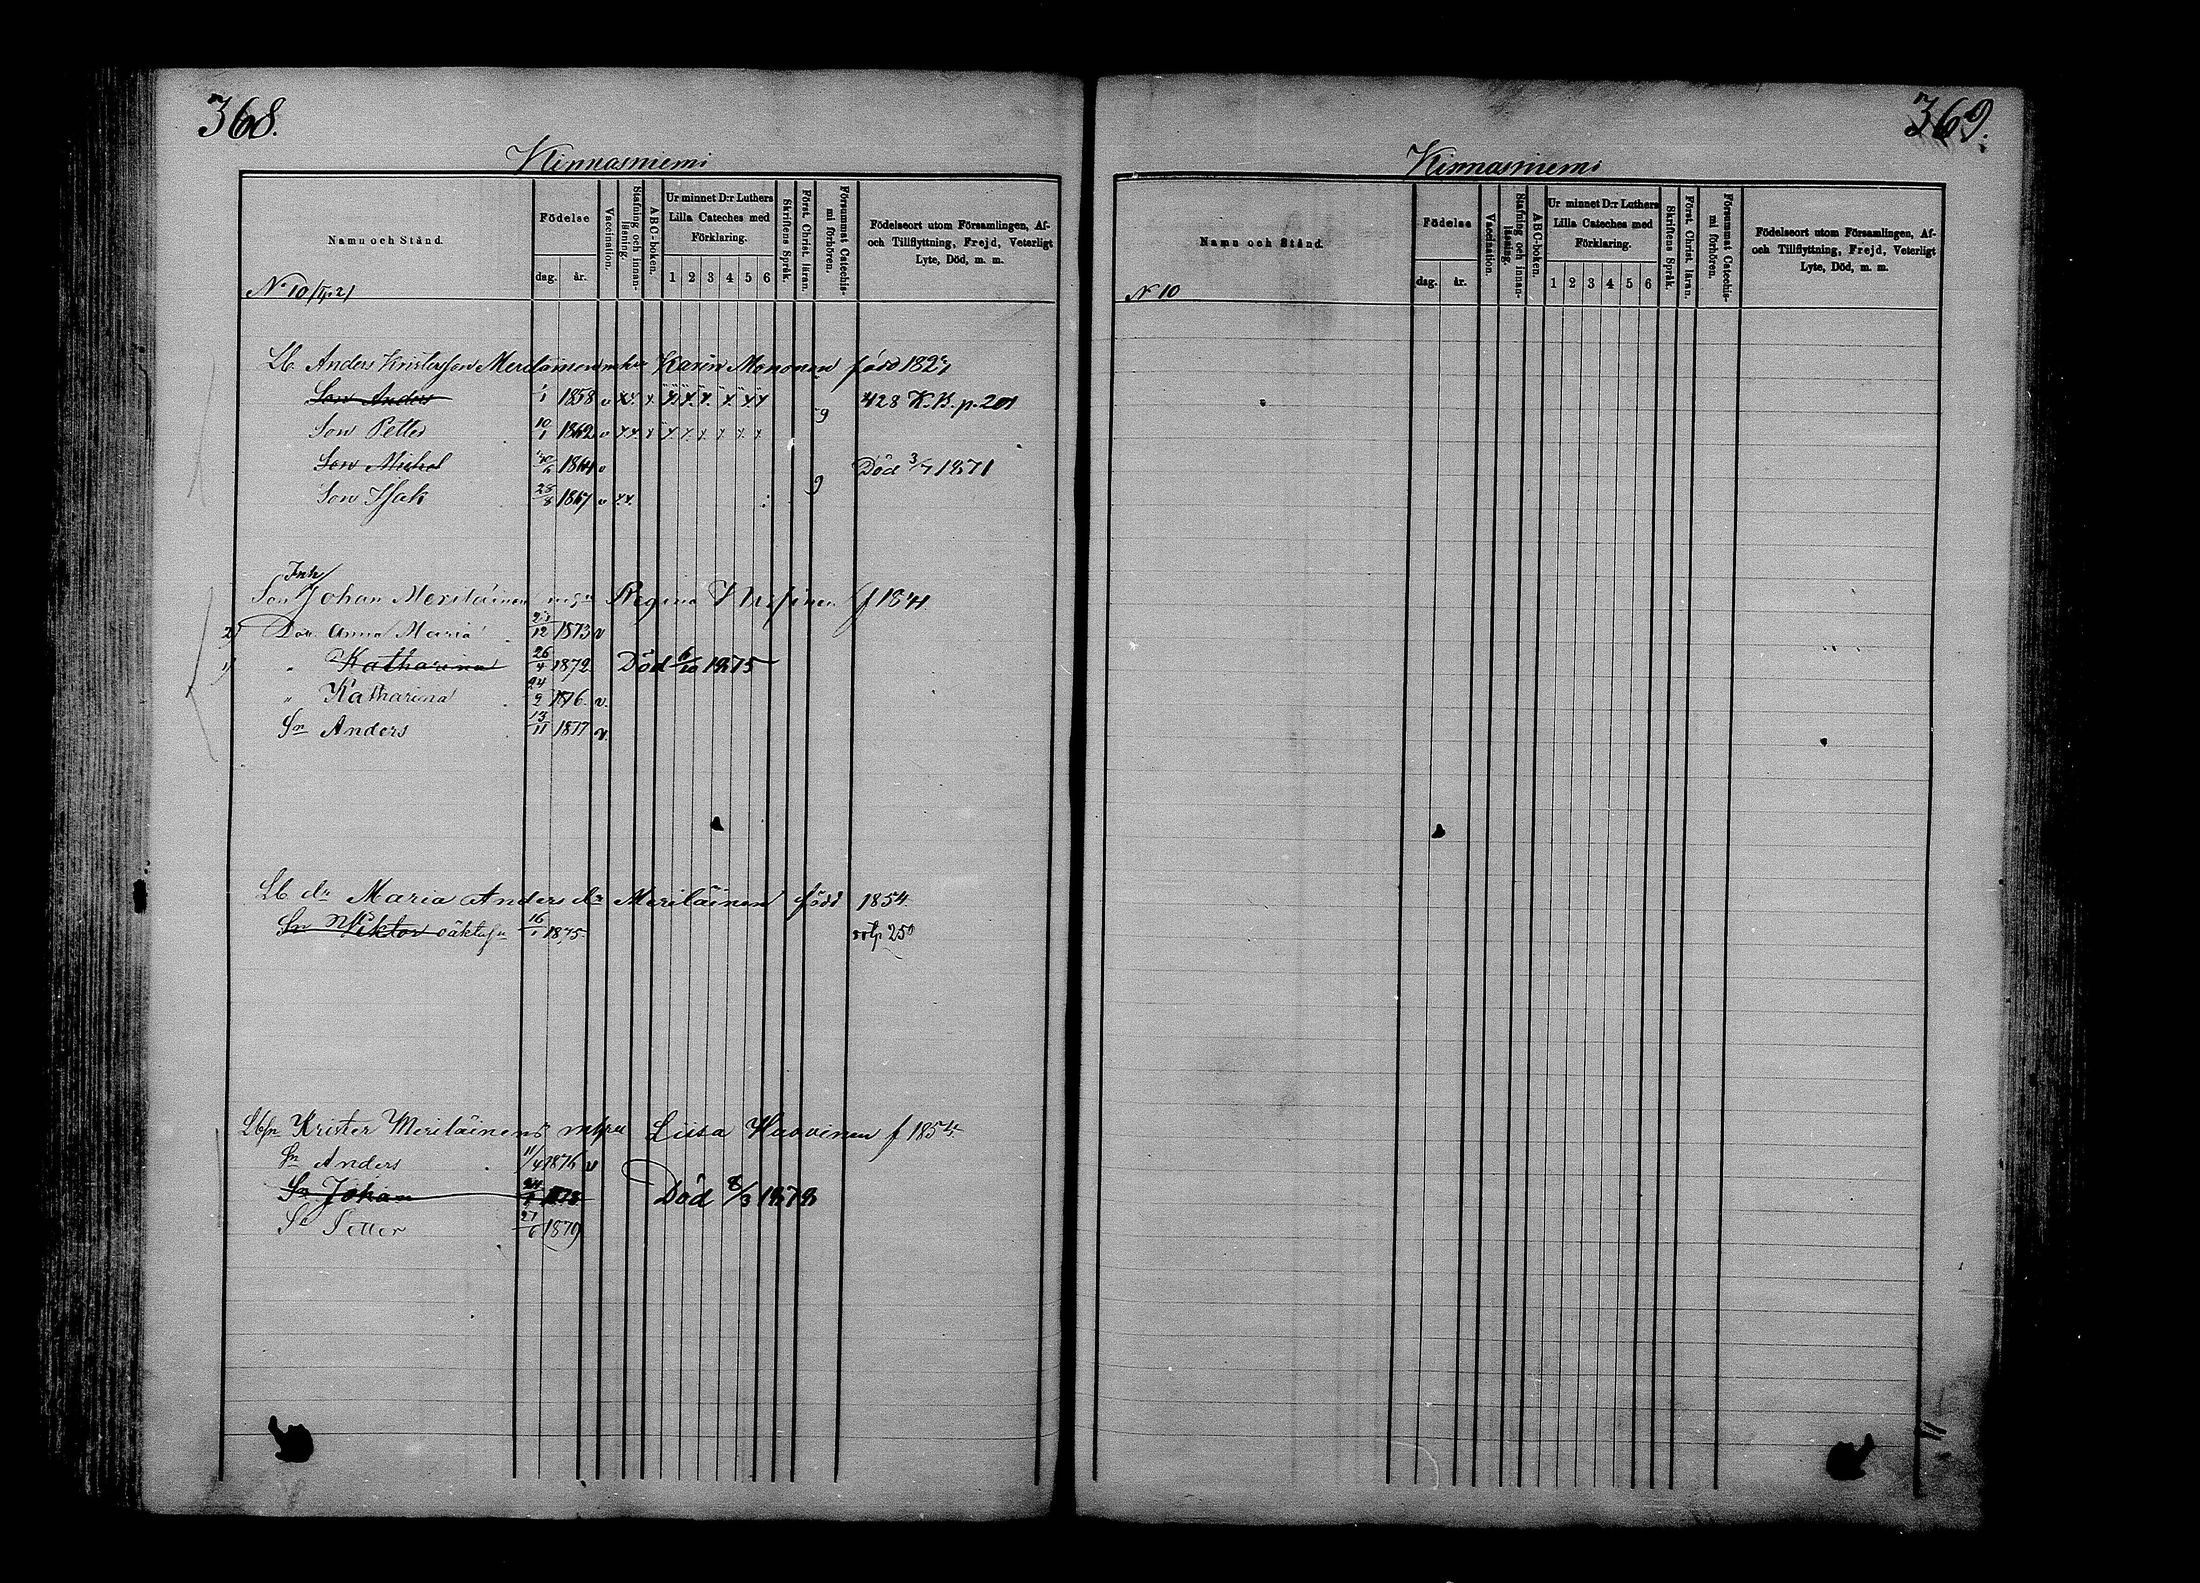 368.
Kinnasniemi
Namn och Stånd.
Födelse
dag.
år.
Vaccination.
Stafning och innan-
läsning.
ABC-boken.
Ur minnet D:r Luthers
Lilla Cateches med
Förklaring.
1 2 3 4 5 6
Skriftens Språk.
Först. Christ. läran.
Försummat Catechis-
mi förhören.
Födelseort utom Församlingen, Af-
och Tillflyttning, Frejd, Veterligt
Lyte, Död, m. m.
Nº 10
Lb. Anders Meriläinen Karin Mononen född
Son Anders 1858 v 428 K.B. p. 201
Son Petter 10/1 1862 v
Son Michel 1864 v Död 3/7 1871
Son Isak 28/8 1867 v
Inh
Son Johan Meriläinen Regina f 1841.
2) Dotr Anna Maria 12 1873 v
1) " Katharina 26/4 1872 Död 6/10 1875
" Katharina 24/9 1876. v.
Sn Anders 13/11 1877 v.
Lb dr Maria Andersdr Meriläinen född 1854.
Sn Wiktor oäkta 16/1 1875.
Lbsn Krister Meriläinen Liisa f
Sn Anders 11/4 1876 v
Sn Johan Död 8/3 1878
Sn Petter 27/6 1879
369.
Kinnasniemi
Namn och Stånd.
Födelse
dag.
år.
Vaccination.
Stafning och innan-
läsning.
ABC-boken.
Ur minnet D:r Luthers
Lilla Cateches med
Förklaring.
1 2 3 4 5 6
Skriftens Språk.
Först. Christ. läran.
Försummat Catechis-
mi förhören.
Födelseort utom Församlingen, Af-
och Tillflyttning, Frejd, Veterligt
Lyte, Död, m. m.
Nº 10